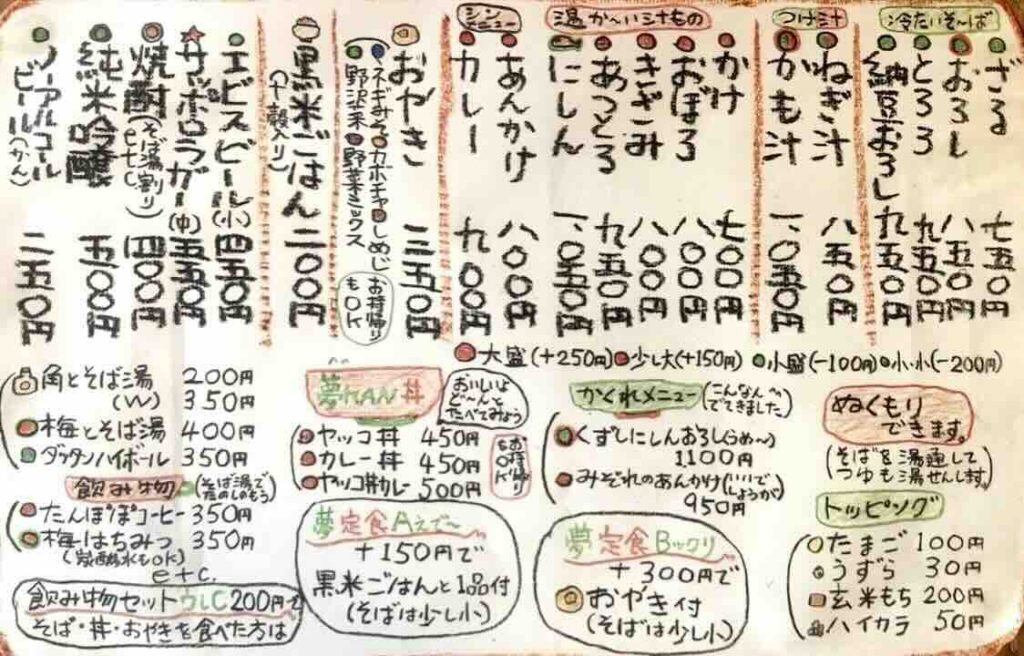 冷たいそ〜ば
ざる 七五〇円
おろし 八五〇円
とろろ 九五〇円
納豆おろし 九五〇円
つけ汁
ねぎ汁 八五〇円
かも汁 一、〇五〇円
温か〜い汁もの
かけ 七〇〇円
おぼろ 八〇〇円
きざみ 八〇〇円
あつとろ 九五〇円
にしん 一、〇五〇円
シン メニュー
あんかけ 八〇〇円
カレー 九〇〇円
おやき 三五〇円
ネギみそ カボチャ しめじ
野沢菜 野菜ミックス
お持帰りもOK
黒米ごはん 二〇〇円
(十穀入り)
エビスビール(小) 四五〇円
サッポロラガー(中) 五五〇円
焼酎(そば湯割り)etc 四〇〇円
純米吟醸 五〇〇円
ノーアルコールビール(かん) 二五〇円
大盛(+250円) 少し大(+150円) 小盛(-100円) 小・小(-200円)
角とそば湯 200円
(W) 350円
梅とそば湯 400円
ダッタンハイボール 350円
飲み物
(そば湯でたのしのもう)
たんぽぽコーヒー 350円
梅はちみつ 350円
(炭酸水もOK)
etc.
飲み物セットウレC200円で
そば・丼・おやきを食べた方は
夢れAN丼
おいしいよ
ど〜んと
たべてみよう
ヤッコ丼 450円
カレー丼 450円
ヤッコ丼カレー 500円
お持帰りもOK
夢定食Aえで〜
+150円で
黒米ごはんと1品付
(そばは少し小)
かくれメニュー
(こんなんででてきました)
くずしにしんおろし(らめ〜)
1100円
みぞれのあんかけ(いいでしょうが)
950円
夢定食Bックリ
+300円で
おやき付
(そばは少し小)
ぬくもり
できます。
(そばを湯通して
つゆも湯せんし村)
トッピング
たまご 100円
うずら 30円
玄米もち 200円
ハイカラ 50円